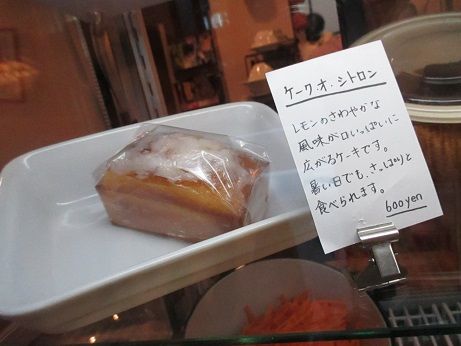 ケーク・オ・シトロン
レモンのさわやかな
風味が口いっぱいに
広がるケーキです。
暑い日でも、さっぱりと
食べられます。
600yen